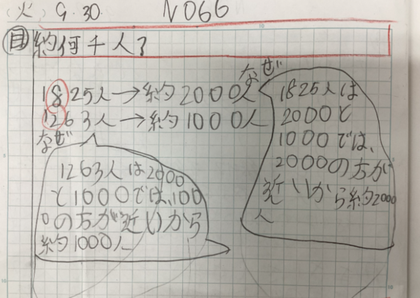 (火) 9.30 NO66
目 約何千人?
1825人→約2000人
1263人→約1000人
なぜ
1825人は
2000と
1000では、
2000の方が
近いから約2000
人
なぜ
1263人は2000
と1000では、100
0の方が近いから
約1000人